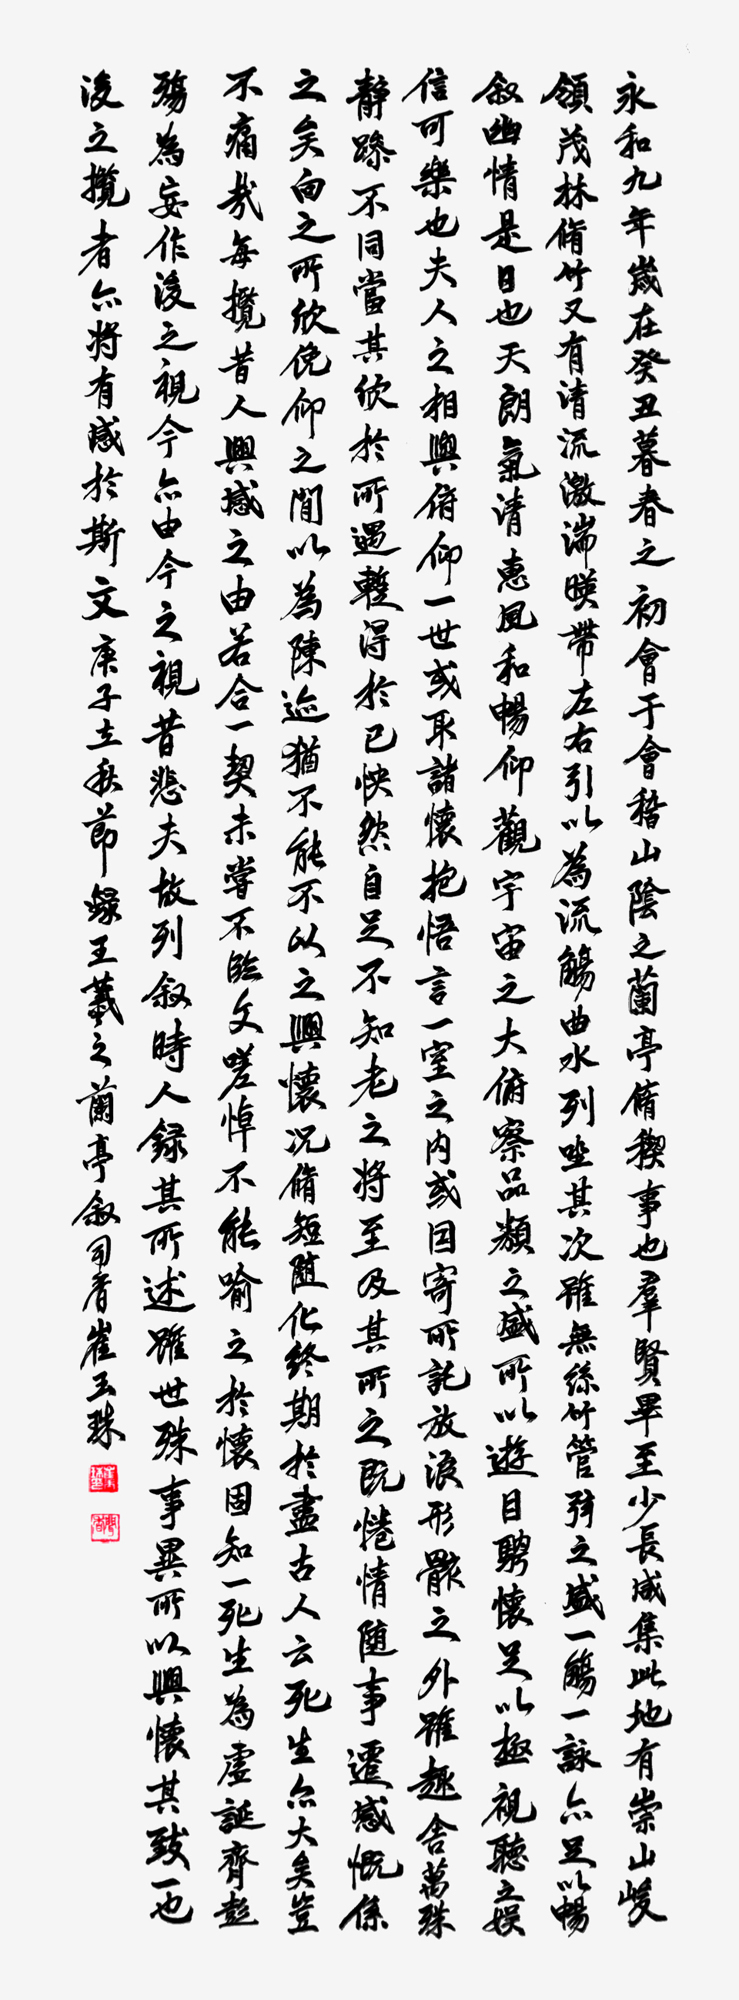 永和九年歲在癸丑暮春之初會于會稽山陰之蘭亭脩稧事也羣賢畢至少長咸集此地有崇山峻
領茂林脩竹又有清流激湍暎帶左右引以為流觴曲水列坐其次雖無絲竹管弦之盛一觴一詠亦足以暢
叙幽情是日也天朗氣清惠風和暢仰觀宇宙之大俯察品類之盛所以遊目騁懷足以極視聽之娛
信可樂也夫人之相與俯仰一世或取諸懷抱悟言一室之內或因寄所託放浪形骸之外雖趣舍萬殊
靜躁不同當其欣於所遇暫得於己怏然自足不知老之將至及其所之既惓情隨事遷感慨係
之矣向之所欣俛仰之閒以為陳迹猶不能不以之興懷況脩短隨化終期於盡古人云死生亦大矣豈
不痛哉每攬昔人興感之由若合一契未嘗不臨文嗟悼不能喻之於懷固知一死生為虛誕齊彭
殤為妄作後之視今亦由今之視昔悲夫故列叙時人錄其所述雖世殊事異所以興懷其致一也
後之攬者亦將有感於斯文庚子立秋節錄王羲之蘭亭叙司香崔玉珠